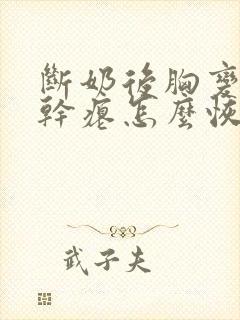 斷奶後胸變
幹癟怎麼恢
武子夫